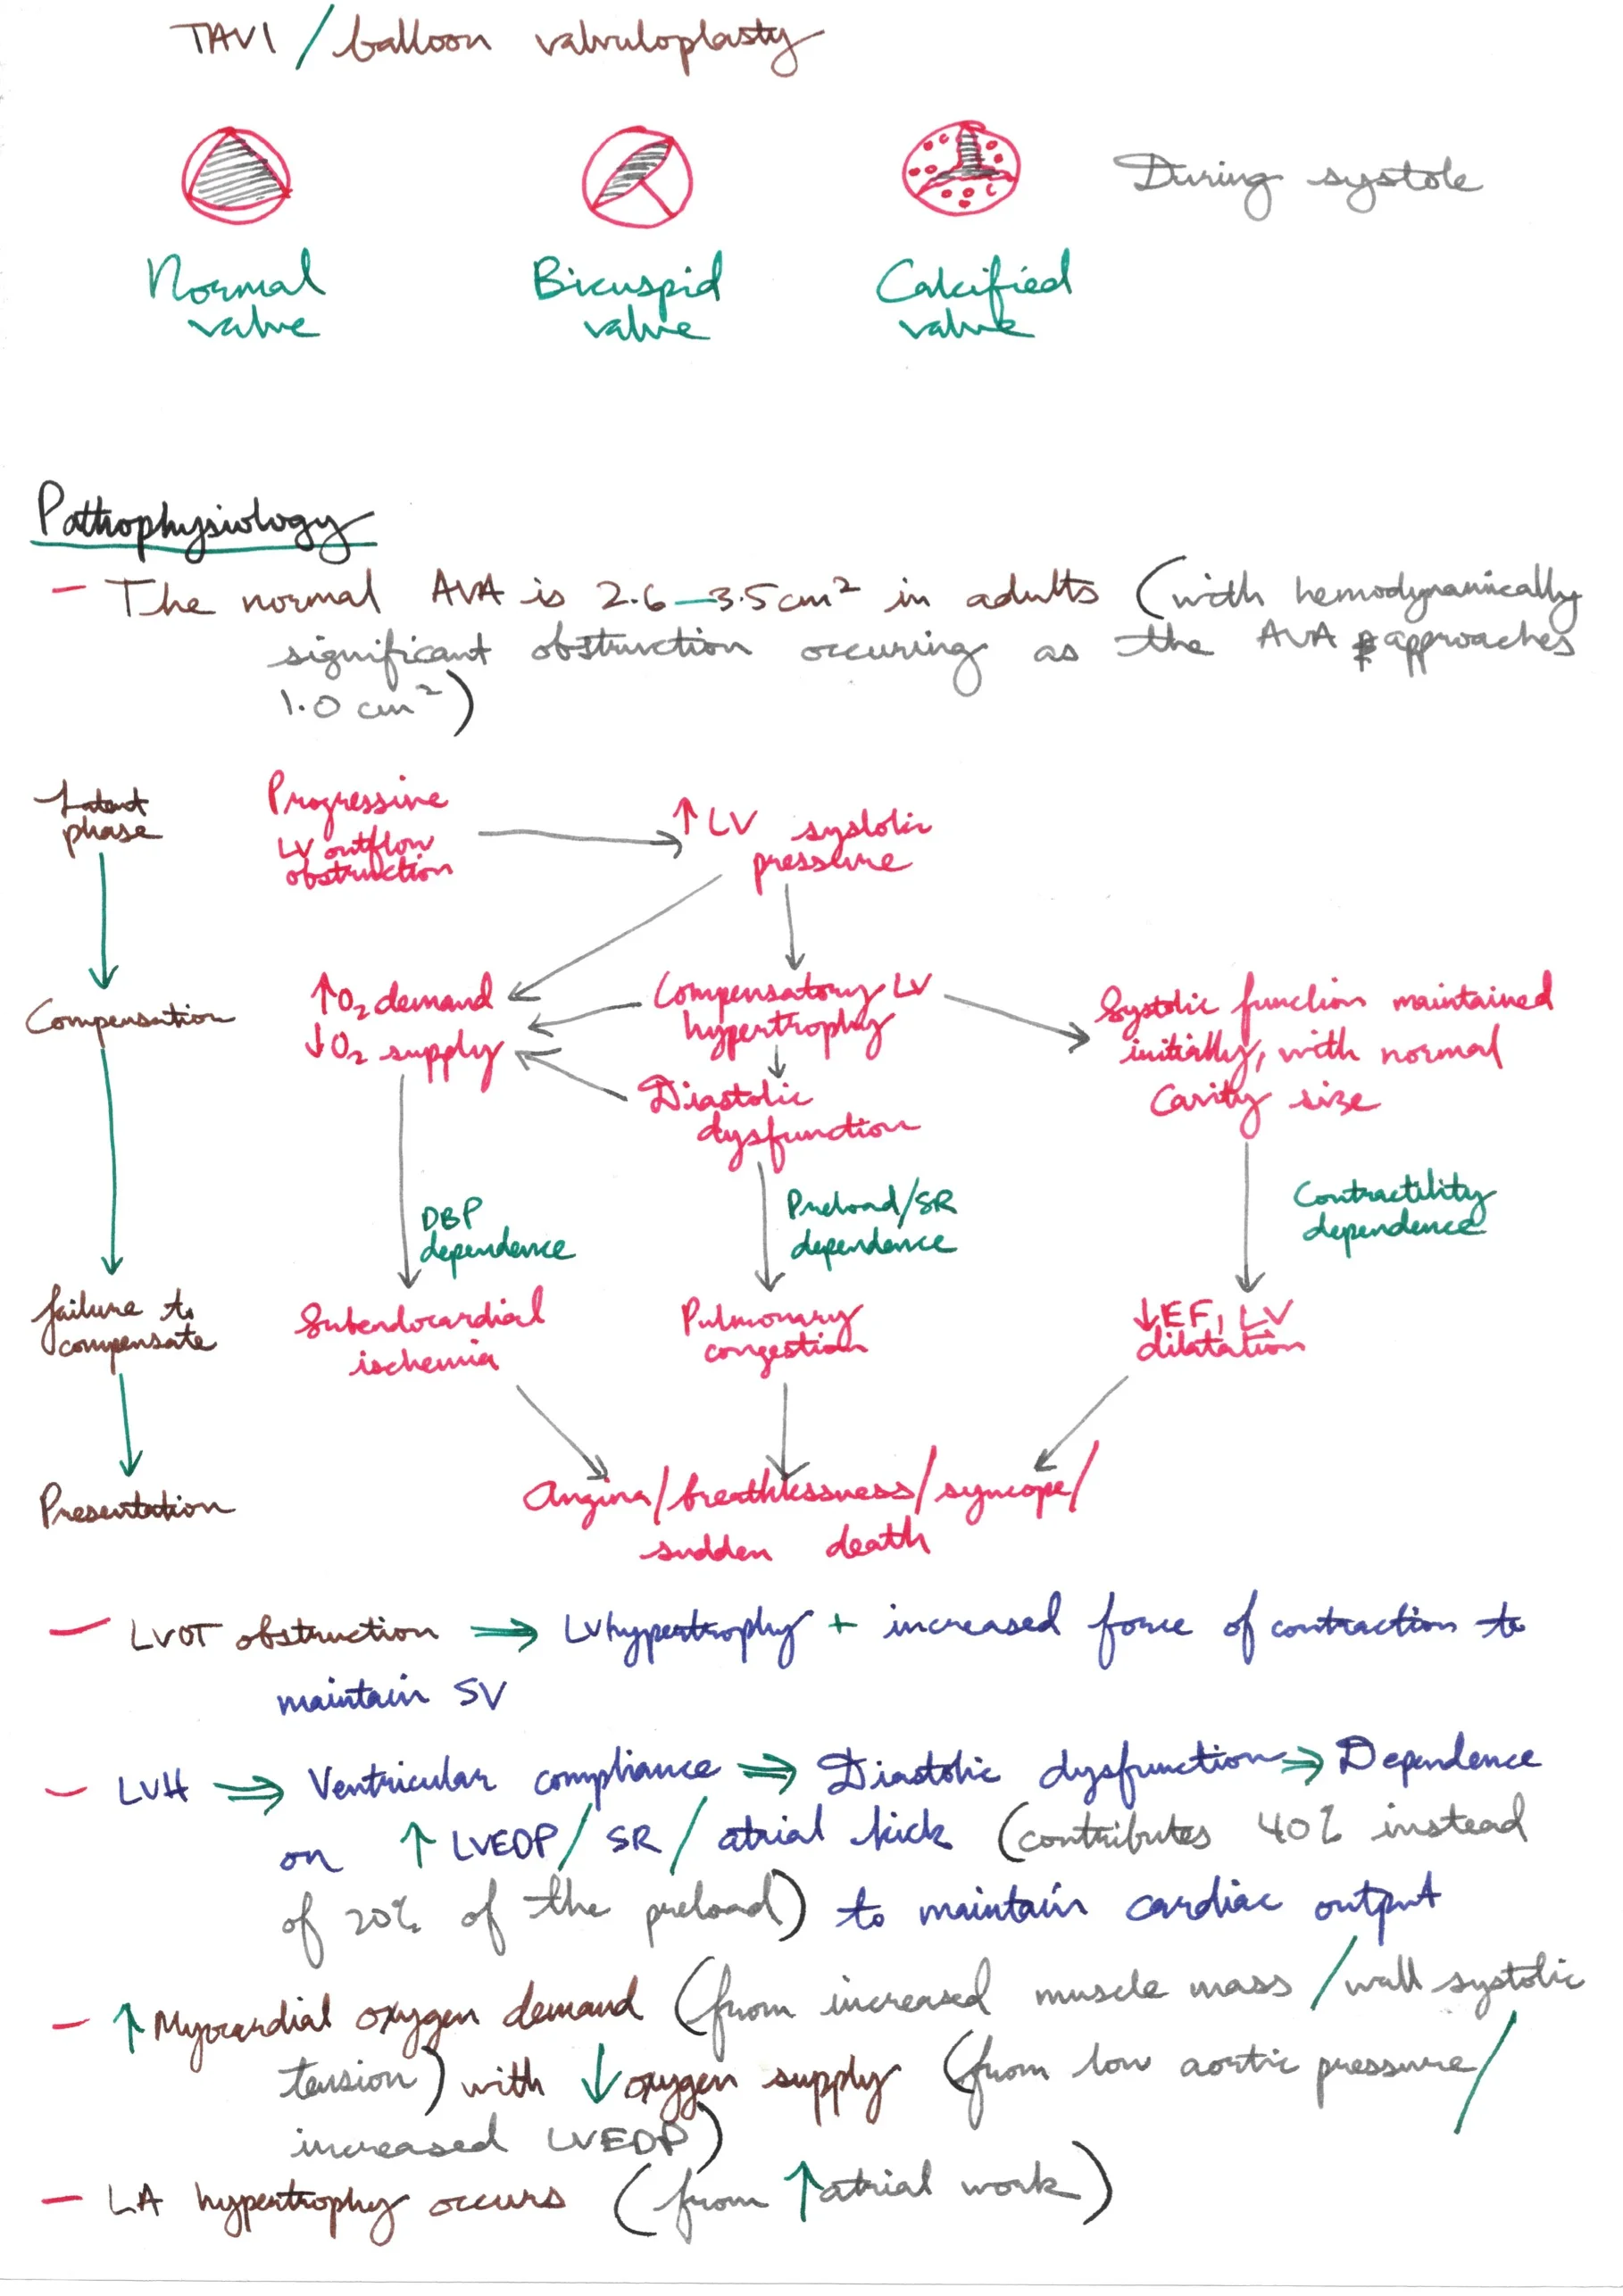 TAVI / balloon valvuloplasty
During systole
Normal valve
Bicuspid valve
Calcified valve
Pathophysiology
- The normal AVA is 2.6-3.5cm² in adults (with hemodynamically
significant obstruction occuring as the AVA approaches
1.0 cm²)
Latent phase
Progressive LV outflow obstruction
↑ LV systolic pressure
Compensation
↑O₂ demand
↓O₂ supply
Compensatory LV hypertrophy
Systolic function maintained initially, with normal cavity size
Diastolic dysfunction
DBP dependence
Preload/SR dependence
Contractility dependence
failure to compensate
Subendocardial ischemia
Pulmonary congestion
↓EF, LV dilatation
Presentation
Angina/breathlessness/syncope/
sudden death
- LVOT obstruction ⇒ LV hypertrophy + increased force of contraction to
maintain SV
- LVH ⇒ Ventricular compliance ⇒ Diastolic dysfunction ⇒ Dependence
on ↑ LVEDP/ SR/ atrial kick (contributes 40% instead
of 20% of the preload) to maintain cardiac output
- ↑ Myocardial oxygen demand (from increased muscle mass / wall systolic
tension) with ↓ oxygen supply (from low aortic pressure/
increased LVEDP)
- LA hypertrophy occurs (from ↑ atrial work)